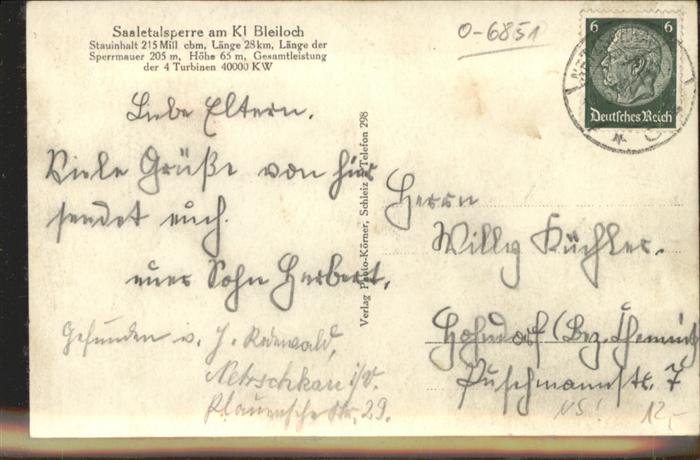 Saaletalsperre am Kl Bleiloch
Stauinhalt 215 Mill cbm, Länge 28 km, Länge der
Sperrmauer 205 m, Höhe 65 m, Gesamtleistung
der 4 Turbinen 40000 KW
O-6851
6 6
Deutsches Reich
Liebe Eltern.
Viele Grüße von hier
sendet euch.
euer Sohn Herbert.
Gefunden v. J. Rodewald,
Netzschkau i/V.
Plauensche Str. 29.
Verlag Paulo-Körner, Schleiz Telefon 298
Herrn
Willy Küchler.
Hohndorf (Bez. Chemnitz
Puschmannstr. 7
NS! 12,-